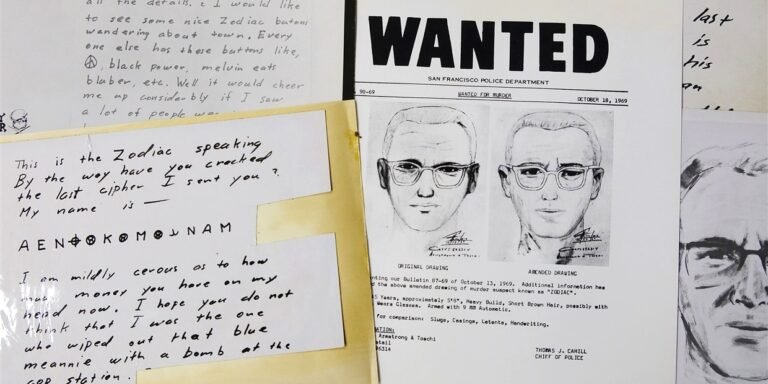 all the details. I would like
to see some nice Zodiac butons
wandering about town. Every
one else has these buttons like,
☮, black power, melvin eats
bluber, etc. Well it would cheer
me up considerbly if I saw
a lot of people
This is the Zodiac speaking
By the way have you cracked
the last cipher I sent you?
My name is —
A E N ⌖ K M ⌖ N A M
I am mildly cerous as to how
much money you have on my
head now. I hope you do not
think that I was the one
who wiped out that blue
meannie with a bomb at the
cop station.
WANTED
SAN FRANCISCO POLICE DEPARTMENT
90-69 WANTED FOR MURDER OCTOBER 18, 1969
ORIGINAL DRAWING AMENDED DRAWING
nting our Bulletin 87-69 of October 13, 1969. Additional information has
d the above amended drawing of murder suspect known as "ZODIAC".
45 Years, approximately 5'8", Heavy Build, Short Brown Hair, possibly with
Wears Glasses. Armed with 9 MM Automatic.
for comparison: Slugs, Casings, Latents, Handwriting.
ATION:
Armstrong & Toschi
tail
96314
THOMAS J. CAHILL
CHIEF OF POLICE
last
is
his